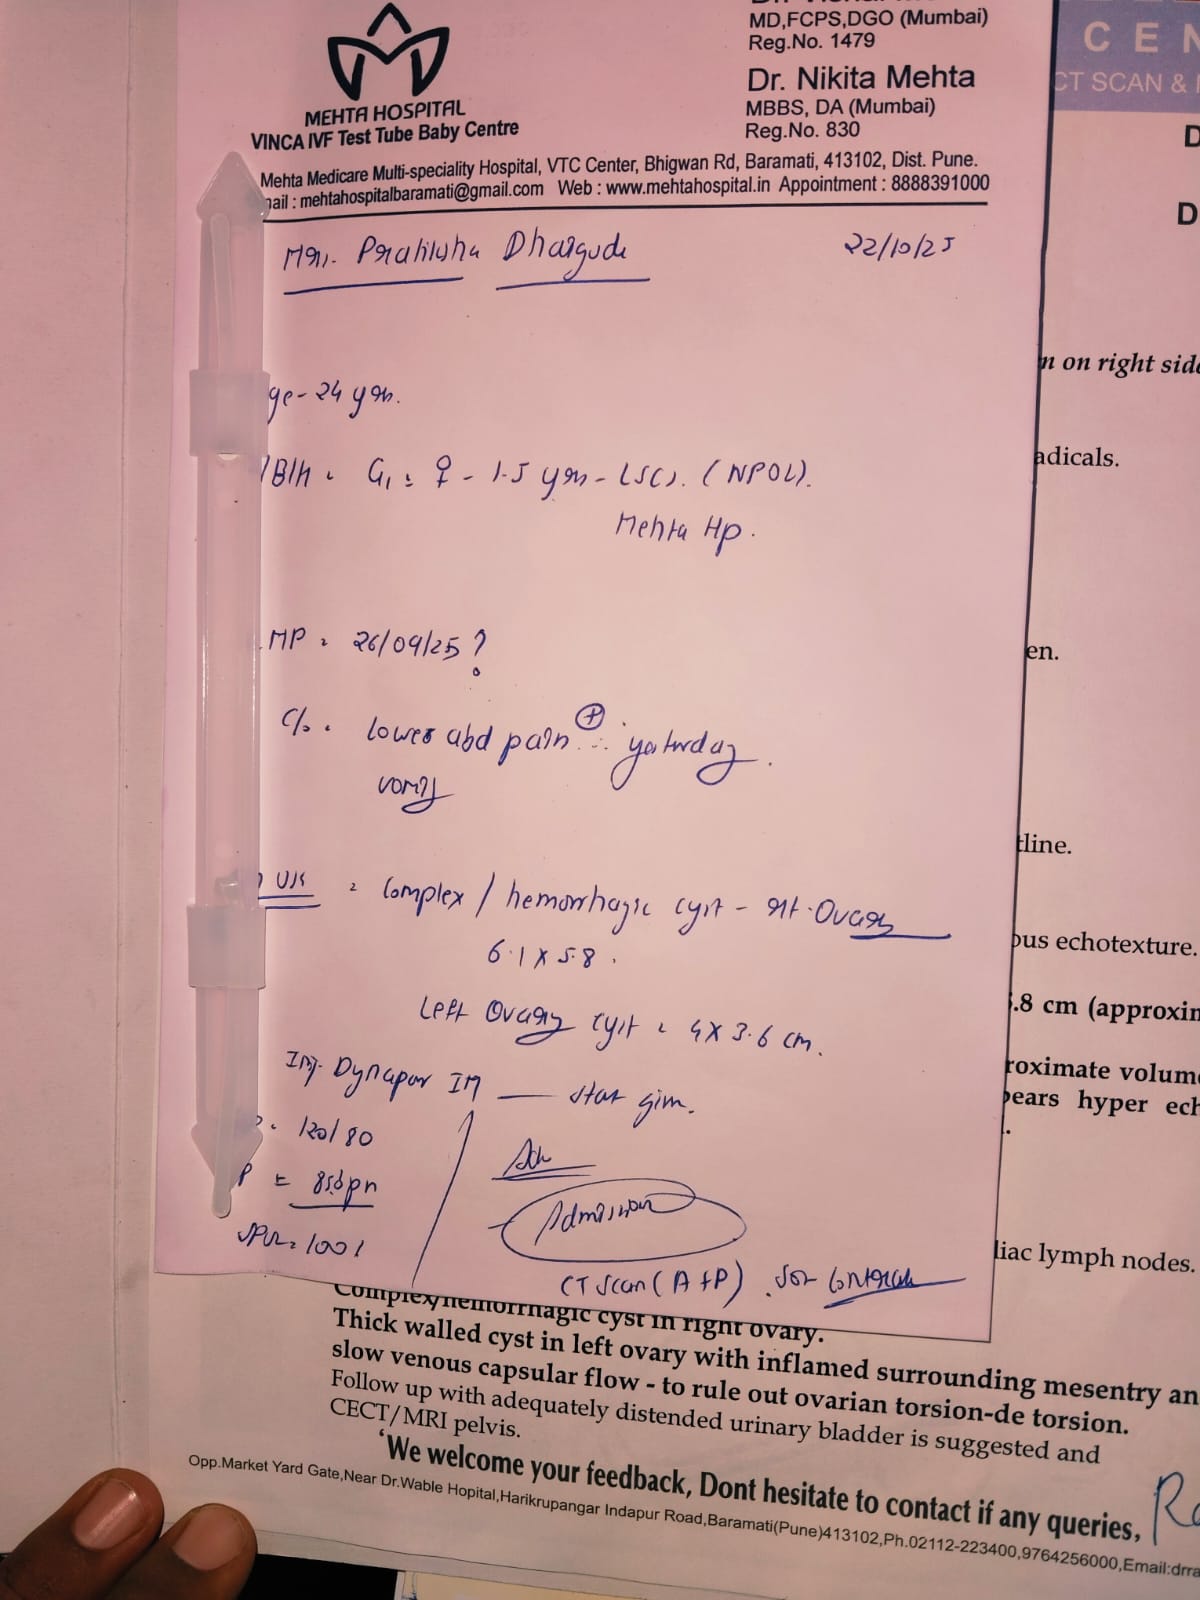 MD,FCPS,DGO (Mumbai)
Reg.No. 1479
Dr. Nikita Mehta
MBBS, DA (Mumbai)
Reg.No. 830
MEHTA HOSPITAL
VINCA IVF Test Tube Baby Centre
Mehta Medicare Multi-speciality Hospital, VTC Center, Bhigwan Rd, Baramati, 413102, Dist. Pune.
ail : mehtahospitalbaramati@gmail.com Web : www.mehtahospital.in Appointment : 8888391000
Dhaigude 22/10/25
ge- 24 yrs.
G1 = ♀ - 1.5 yrs - LSCS. (NPOL).
Mehta Hp.
MP = 26/09/25 ?
C/o. lower abd pain ⊕ ∴ yesterday.
= Complex / hemorrhagic cyst - rt. Ovary
6.1 X 5.8.
Left Ovary cyst = 4 X 3.6 cm.
Inj. Dynapar IM — stat gim.
120/80
P =
= 100%
Adv
Admission
CT Scan (A+P)
CEN
CT SCAN &
D
D
n on right side
adicals.
en.
tline.
ous echotexture.
.8 cm (approxim
roximate volume
pears hyper ech
liac lymph nodes.
Complex/hemorrhagic cyst in right ovary.
Thick walled cyst in left ovary with inflamed surrounding mesentry an
slow venous capsular flow - to rule out ovarian torsion-de torsion.
Follow up with adequately distended urinary bladder is suggested and
CECT/MRI pelvis.
'We welcome your feedback, Dont hesitate to contact if any queries,
Opp.Market Yard Gate,Near Dr.Wable Hopital,Harikrupangar Indapur Road,Baramati(Pune)413102,Ph.02112-223400,9764256000,Email:drra